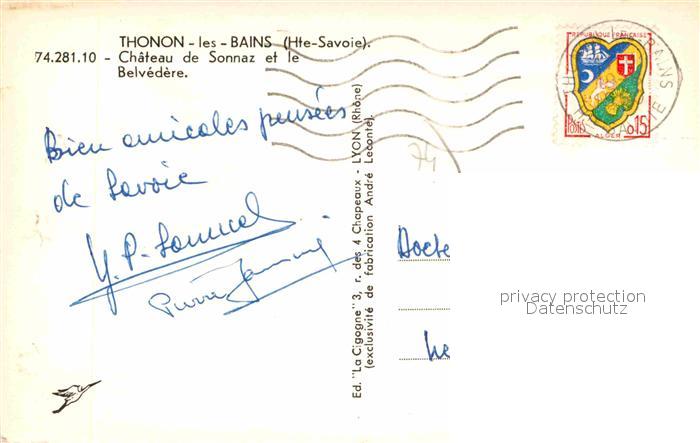 THONON - les - BAINS (Hte-Savoie).
74.281.10 - Château de Sonnaz et le
Belvédère.
RÉPUBLIQUE FRANÇAISE
POSTES
0,15
ALGER
74
Bien amicales pensées
de Savoie
Pierre
Ed. "La Cigogne" 3, r. des 4 Chapeaux - LYON (Rhône)
(exclusivité de fabrication André Leconte).
Docte
privacy protection
Datenschutz